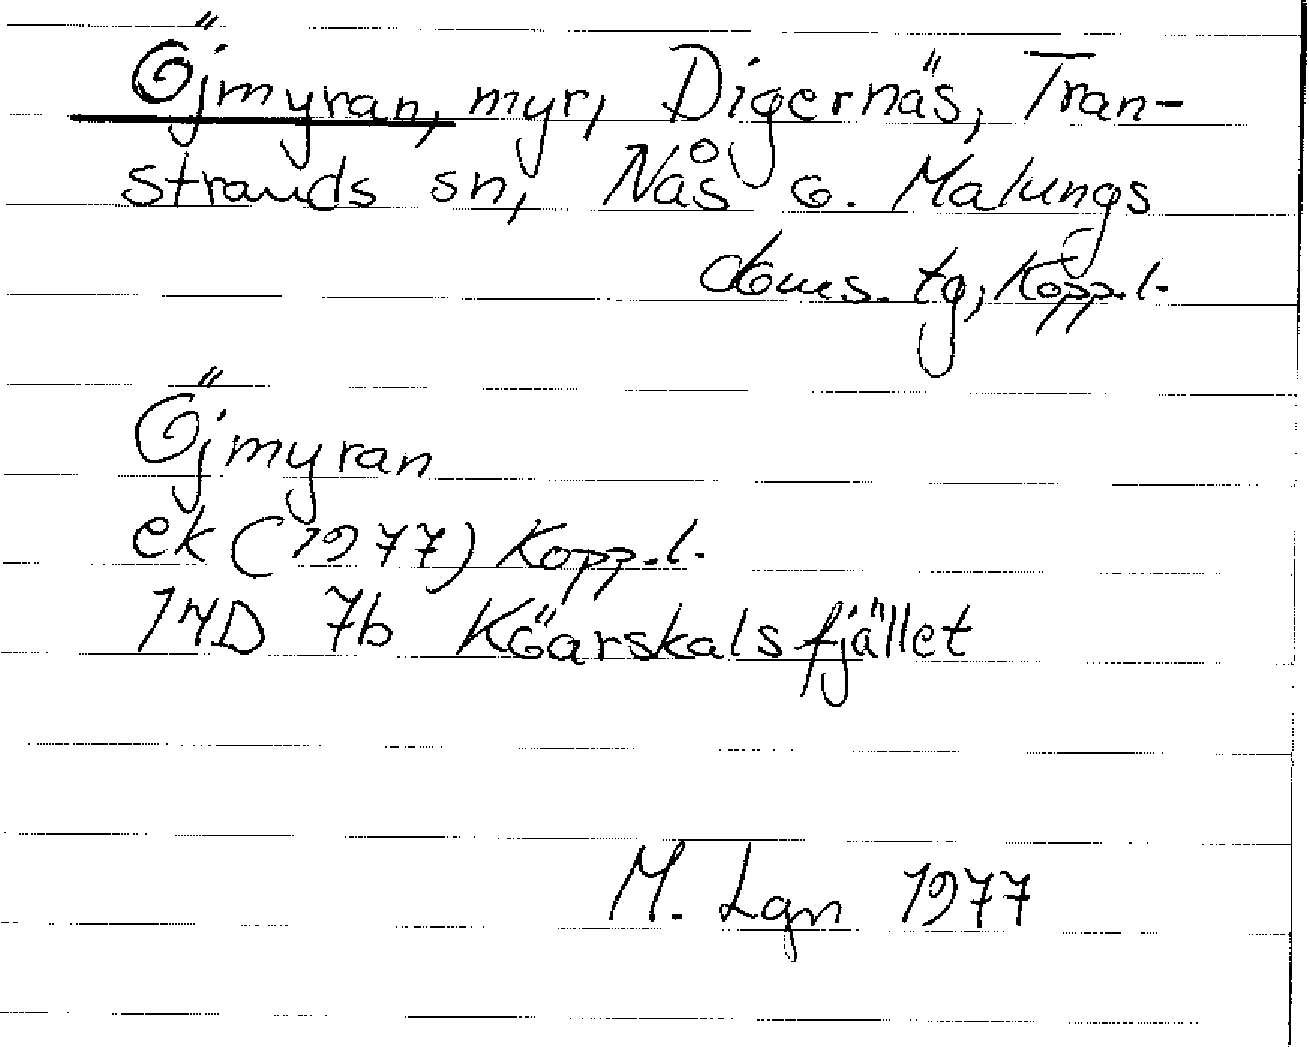 Öjmyran, myr, Digernäs, Tran-
strands sn, Nås o. Malungs
doms. tg, Kopp. l.
Öjmyran
ek (1977) Kopp. l.
14D 7b Köarskalsfjället
M. Lgn 1977